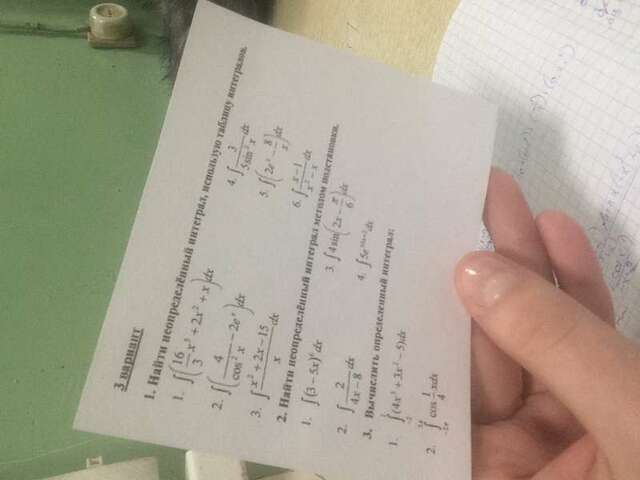 3 вариант
1. Найти неопределённый интеграл, использую таблицу интегралов.
1. ∫(16/3 x³ + 2x² + x)dx
2. ∫(4/cos² x − 2eˣ)dx
3. ∫(x² + 2x − 15)/x dx
4. ∫3/(5sin² x) dx
5. ∫(2eˣ − 8/x)dx
6. ∫(x − 1)/(x² − x) dx
2. Найти неопределённый интеграл методом подстановки.
1. ∫(3 − 5x)⁶ dx
2. ∫2/(4x − 8) dx
3. ∫4sin(2x − π/6)dx
4. ∫5e dx
3. Вычислить определенный интеграл:
1. ∫(4x³ + 3x² − 5)dx
2. ∫cos 1/4 xdx